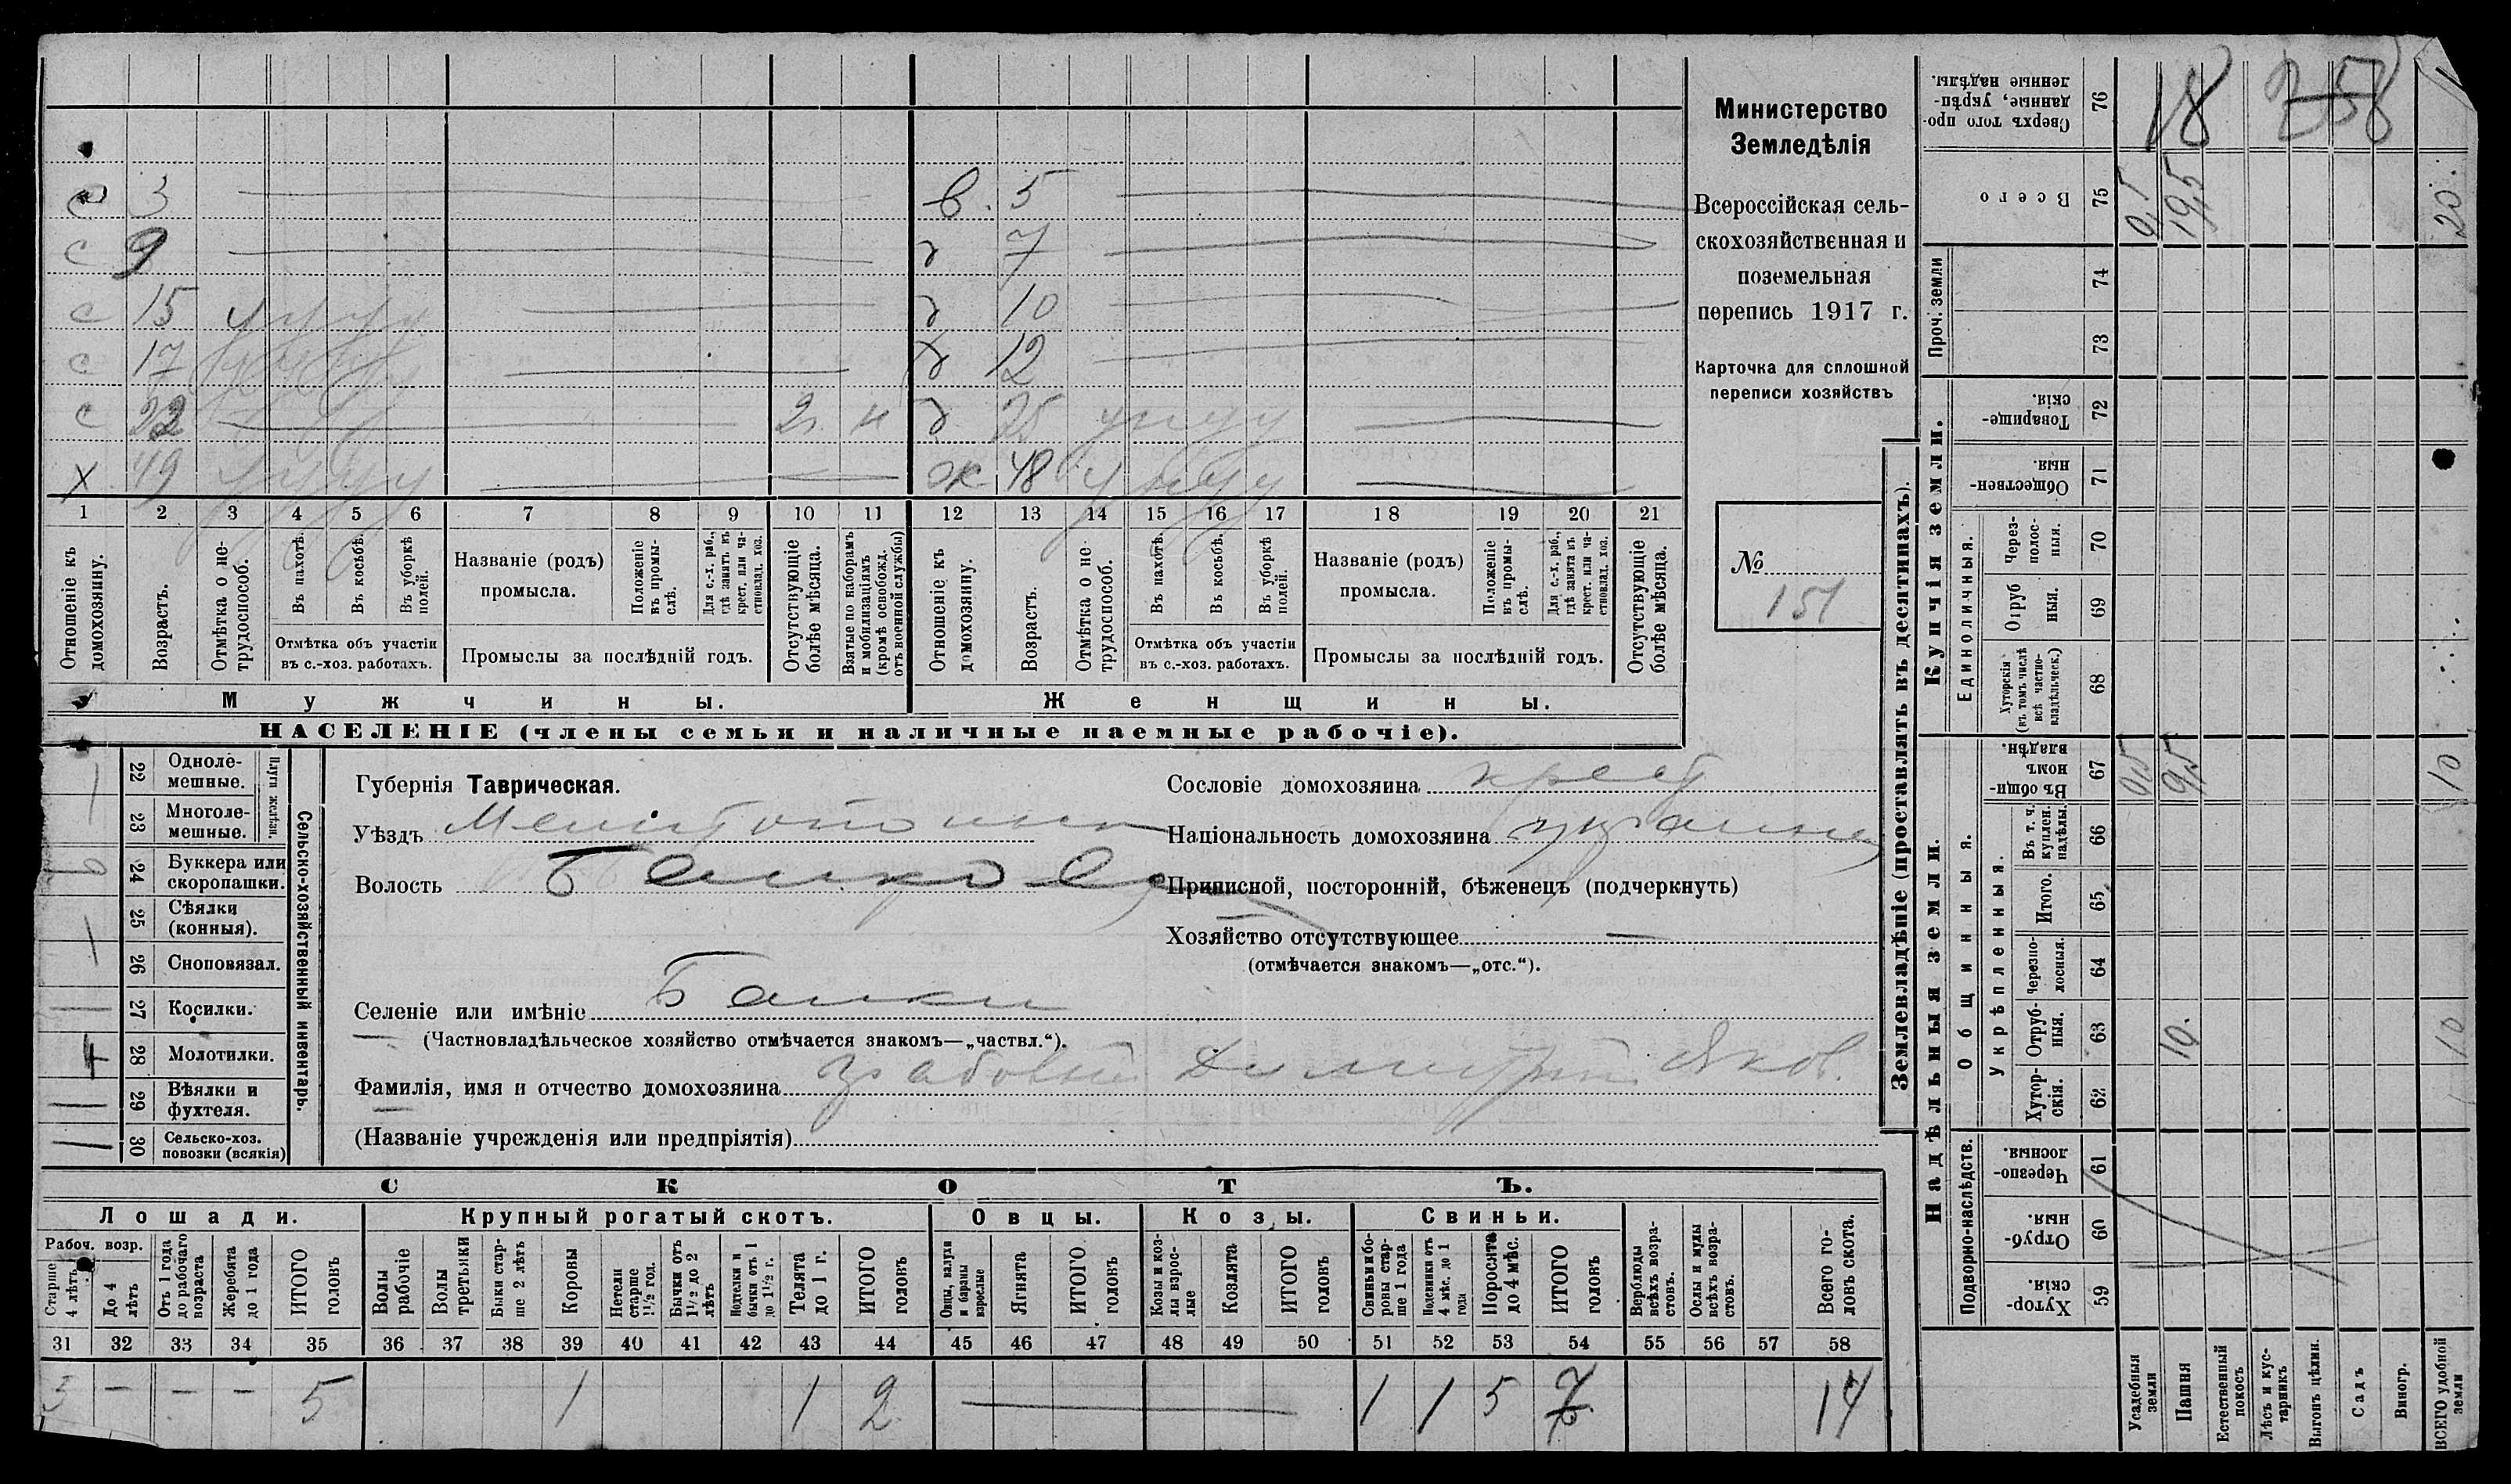 с 3 в. 5
с 9 д 7
с 15 д 10
с 17 д 12
с 22 2 н д 25
х 49 ж 48
1 2 3 4 5 6 7 8 9 10 11 12 13 14 15 16 17 18 19 20 21
Отношеніе къ домохозяину.
Возрастъ.
Отмѣтка о нетрудоспособ.
Въ пахотѣ.
Въ косьбѣ.
Въ уборкѣ полей.
Отмѣтка объ участіи въ с.-хоз. работахъ.
Названіе (родъ) промысла.
Положеніе въ промыслѣ.
Для с.-х. раб., гдѣ занятъ въ крест. или частновлад. хоз.
Промыслы за послѣдній годъ.
Отсутствующіе болѣе мѣсяца.
Взятые по наборамъ и мобилизаціямъ (кромѣ освобожд. отъ военной службы)
Отношеніе къ домохозяину.
Возрастъ.
Отмѣтка о не трудоспособ.
Въ пахотѣ.
Въ косьбѣ.
Въ уборкѣ полей.
Отмѣтка объ участіи въ с.-хоз. работахъ.
Названіе (родъ) промысла.
Положеніе въ промыслѣ.
Для с.-х. раб., гдѣ занята въ крест. или частновлад. хоз.
Промыслы за послѣдній годъ.
Отсутствующіе болѣе мѣсяца.
Мужчины.
Женщины.
НАСЕЛЕНІЕ (члены семьи и наличные наемные рабочіе).
Министерство
Земледѣлія
Всероссійская сель-
скохозяйственная и
поземельная
перепись 1917 г.
Карточка для сплошной
переписи хозяйствъ
№
151
Сельско-хозяйственный инвентарь.
Плуги желѣзн.
22 Однолемешные.
23 Многолемешные.
24 Буккера или скоропашки.
25 Сѣялки (конныя).
26 Сноповязал.
27 Косилки.
28 Молотилки.
29 Вѣялки и фухтеля.
30 Сельско-хоз. повозки (всякія)
Губернія Таврическая.
Уѣздъ
Волость
Селеніе или имѣніе Балки
(Частновладѣльческое хозяйство отмѣчается знакомъ—„частвл.“).
Фамилія, имя и отчество домохозяина Димитрий Яков.
(Названіе учрежденія или предпріятія)
Сословіе домохозяина крест
Національность домохозяина
Приписной, посторонній, бѣженецъ (подчеркнуть)
Хозяйство отсутствующее —
(отмѣчается знакомъ—„отс.“).
СКОТЪ.
Лошади. Крупный рогатый скотъ. Овцы. Козы. Свиньи.
Рабоч. возр.
Старше 4 лѣтъ
До 4 лѣтъ
Отъ 1 года до рабочаго возраста
Жеребята до 1 года
ИТОГО головъ
Волы рабочіе
Волы третьяки
Быки старше 2 лѣтъ
Коровы
Нетели старше 1½ год.
Бычки отъ 1½ до 2 лѣтъ
Подтелки и бычки отъ 1 до 1½ г.
Телята до 1 г.
ИТОГО головъ
Овцы, валухи и бараны взрослые
Ягнята
ИТОГО головъ
Козы и козлы взрослые
Козлята
ИТОГО головъ
Свиньи и боровы старше 1 года
Подсвинки отъ 4 мѣс. до 1 года
Поросята до 4 мѣс.
ИТОГО головъ
Верблюды всѣхъ возрастовъ.
Ослы и мулы всѣхъ возрастовъ.
Всего головъ скота.
31 32 33 34 35 36 37 38 39 40 41 42 43 44 45 46 47 48 49 50 51 52 53 54 55 56 57 58
— — — 5 1 1 2 1 1 5 7 14
Землевладѣніе (проставлять въ десятинахъ).
Сверхъ того проданные, укрѣпленные надѣлы. 76 18
Всего 75 19,5 20.
Купчія земли.
Проч. земли 74
73
Товарищескія. 72
Общественныя. 71
Единоличныя.
Черезполосныя. 70
Отрубныя. 69
Хуторскія (въ томъ числѣ всѣ частновладѣльческ.) 68
Надѣльныя земли.
Общинныя.
Въ общинномъ владѣн. 67 9,5 10
Укрѣпленныя.
Въ т. ч. куплен. надѣлы. 66
Итого. 65
Черезполосныя. 64
Отрубныя. 63 10. 10
Хуторскія. 62
Подворно-наслѣдств.
Черезполосныя. 61
Отрубныя. 60
Хуторскія. 59
Усадебныя земли
Пашня
Естественный покосъ
Лѣсъ и кустарникъ
Выгонъ цѣлин.
Садъ
Виногр.
ВСЕГО удобной земли